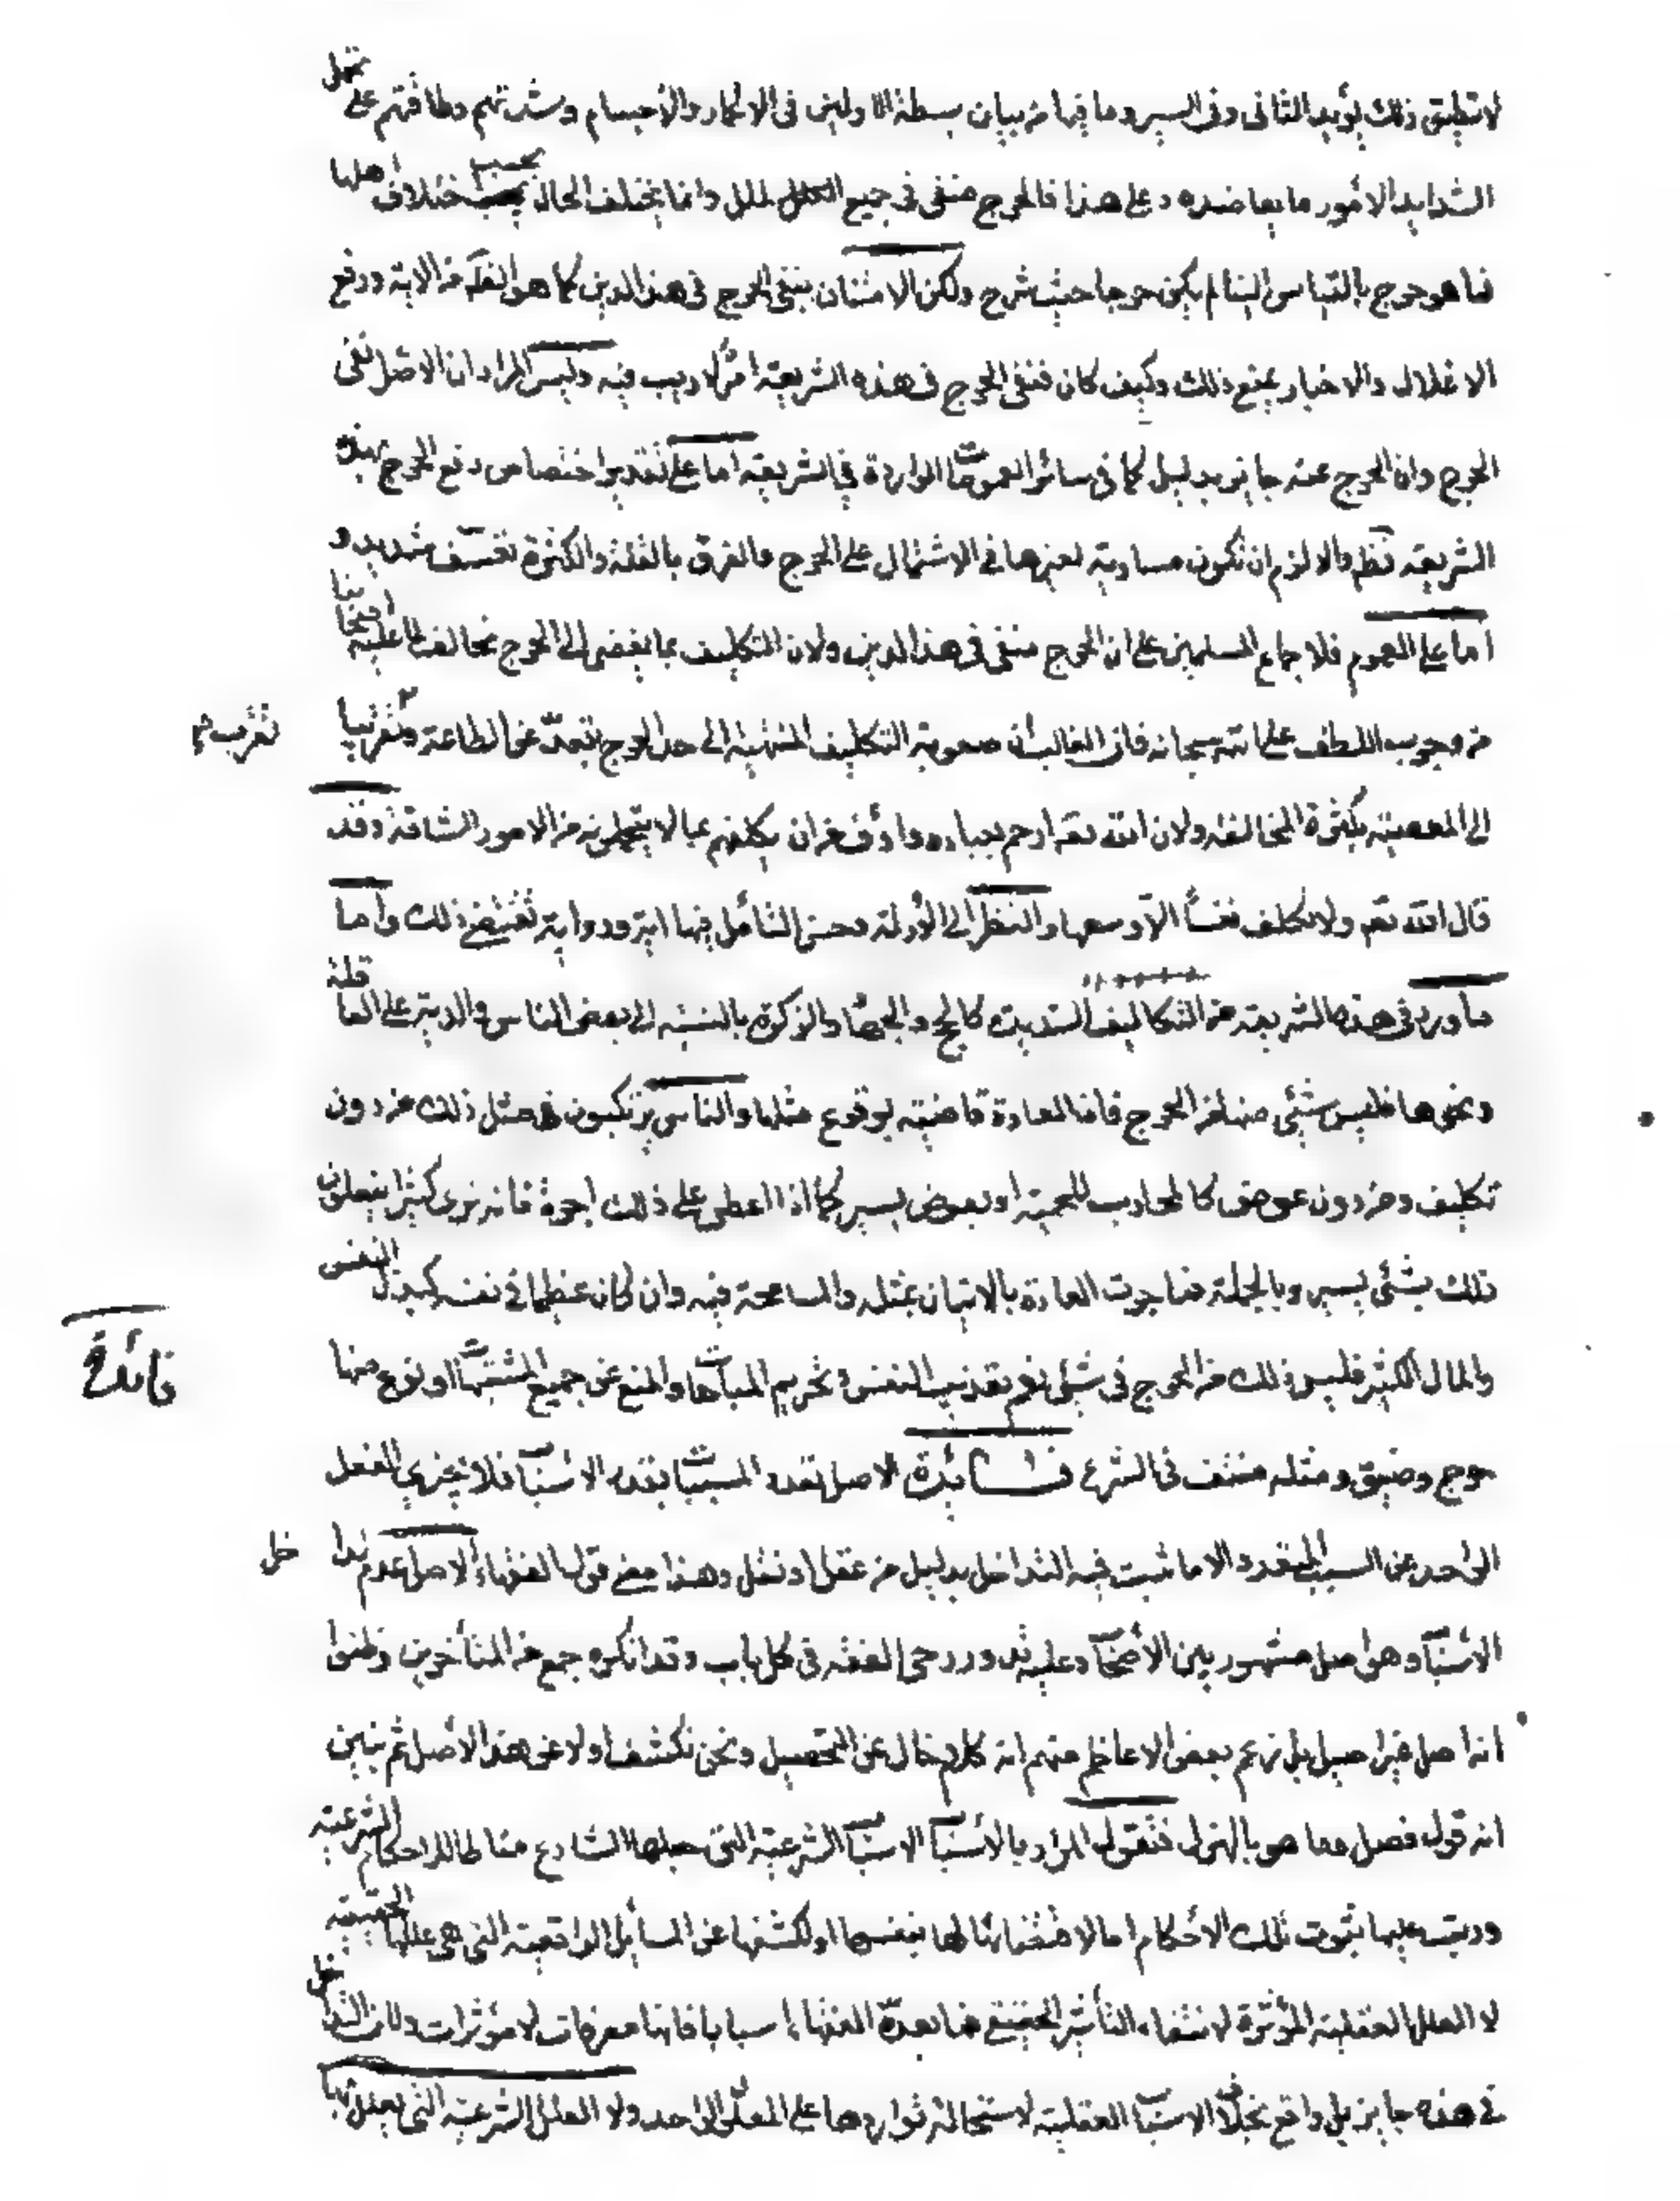 لا تطيق ذلك يؤيد الثانى وفى السير وما فيها من بيان بسطة الاولين فى الاعمار والاجسام وشدتهم وطاقتهم على تحمل
الشدايد الأمور ما يعاضده وعلى هذا فالحرج منفى فى جميع الملل وانما يختلف الحال بحسب اختلاف اهلها
فما هو حرج بالقياس الينا لم يكن حرجا حيث شرع ولكن الامتنان بنفى الحرج فى هذا الدين كما هو الظ من الاية ورفع
الاغلال والاخبار يمنع ذلك وكيف كان فنفى الحرج فى هذه الشريعة امر لا ريب فيه وليس المراد ان الاصل نفى
الحرج وان الخروج عنه جايز بدليل كما فى سائر العمومات الواردة في الشريعة اما على تقدير اختصاص رفع الحرج بهذه
الشريعة فظ والا لزم ان تكون مساوية لغيرها في الاشتمال على الحرج والفرق بالقلة والكثرة تعسف شديد و
اما على العموم فلاجماع المسلمين على ان الحرج منفى فى هذا الدين ولان التكليف بما يفضى الى الحرج مخالف لما عليه اصحابنا
من وجوب اللطف على الله سبحانه فان الغالب ان صعوبة التكليف المنتهية الى حد الحرج تبعد عن الطاعة و تقرب
الى المعصية بكثرة المخالفة ولان الله تعه ارحم بعباده وارأف من ان يكلفهم بما لا يتحملونه من الامور الشاقة وقد
قال الله تعه ولا نكلف نفسا الا وسعها والنظر الى الأدلة وحسن التأمل فيها اية ورواية تقتضى ذلك واما
ما ورد فى هذه الشريعة من التكاليف الشديدة كالحج والجهاد والزكوة بالنسبة الى بعض الناس والدية على العاقلة
ونحوها فليس شيئ منها من الحرج فان العادة قاضية بوقوع مثلها والناس يرتكبون مثل ذلك من دون
تكليف ومن دون عوض كالمحارب للحمية او بعوض يسير كما اذا اعطى على ذلك اجرة فانه نرى كثيرا يفعلون
ذلك بشئى يسير وبالجملة فما جرت العادة بالاتيان بمثله والمسامحة فيه وان كان عظيما في نفسه كبذل النفس
والمال الكثير فليس ذلك من الحرج فى شئى نعم تعذيب النفس وتحريم المباحات والمنع عن جميع المشتهيات او نوع منها
حرج وضيق ومثله منتف فى الشرع فائدة الاصل تعدد المسببات بتعدد الاسباب فلا يجزي الفعل
الواحد عن السبب المتعدد الا ما ثبت فيه التداخل بدليل من عقل او نقل وهذا معنى قول الفقهاء الاصل عدم تداخل
الأسباب وهو اصل مشهور بين الأصحاب وعليه تدور رحى الفقه فى كل باب وقد انكره جمع من المتأخرين وظنوا
انه اصل غير اصيل بل زعم بعض الاعاظم منهم انه كلام خال عن التحصيل ونحن نكشف اولا عن هذا الأصل ثم نبين
انه قول فصل وما هو بالهزل فنقول المراد بالأسباب الاسباب الشرعية التى جعلها الشارع مناطا للاحكام الشرعية
ورتب عليها ثبوت تلك الأحكام اما لاقتضائها لها بنفسها او لكشفها عن المسائل الواقعية التى هى عللها الحقيقية
لا العلل العقلية المؤثرة لانتفاء التأثير الحقيقى فيما يعده الفقهاء اسبابا فانها معرفات لا مؤثرات ولان التداخل
فى هذه جايز بل واقع بخلاف الاسباب العقلية لاستحالة تواردها على المعلول الواحد ولا العلل الشرعية التى يعلل بها
فائدة